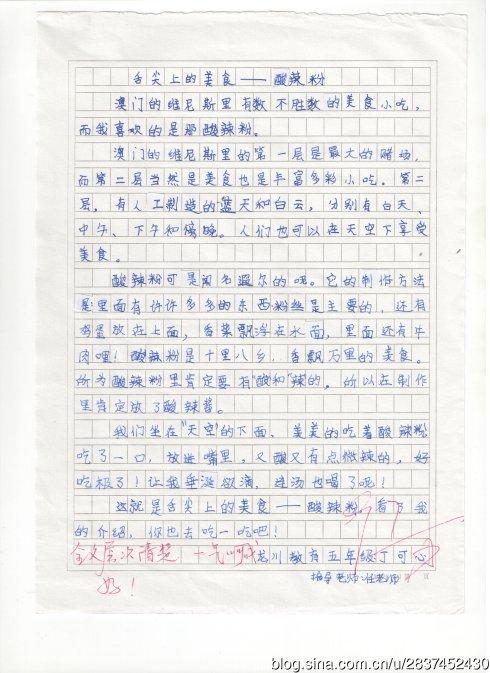 舌尖上的美食——酸辣粉
澳门的维尼斯里有数不胜数的美食小吃，
而我喜欢的是那酸辣粉。
澳门的维尼斯里的第一层是最大的赌场，
而第二层当然是美食也是丰富多彩小吃。第三
层，有人工制造的蓝天和白云，分别有白天、
中午、下午和傍晚。人们也可以在天空下享受
美食。
酸辣粉可是闻名遐尔的呢。它的制作方法
是里面有许许多多的东西粉丝是主要的，还有
鸡蛋放在上面，香菜飘浮在水面，里面还有牛
肉哩！酸辣粉是十里八乡，香飘万里的美食。
所为酸辣粉里肯定要有"酸"和"辣"的。所以在制作
里肯定放了酸辣酱。
我们坐在"天空"的下面，美美的吃着酸辣粉
吃了一口，放进嘴里，又酸又有点微辣的，好
吃极了！让我垂涎欲滴，连汤也喝了呢！
这就是舌尖上的美食——酸辣粉。看了我
的介绍，你也去吃一吃吧！
全文层次清楚 一气呵成 龙川教育五年级丁可心
好！ 指导老师：任老师
blog.sina.com.cn/u/2837452430